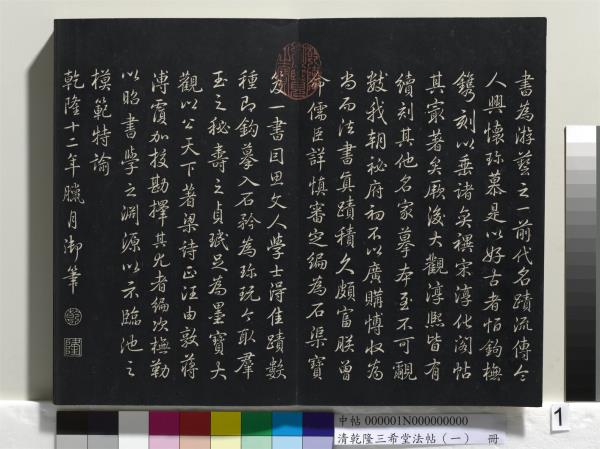 書為游藝之一前代名蹟流傳令
人興懷珍慕是以好古者恒鉤橅
鐫刻以垂諸奕禩宋淳化閣帖
其最著矣厥後大觀淳熙皆有
續刻其他名家摹本至不可覼
數我朝秘府初不以廣購博收為
尚而法書真蹟積久頗富朕曾
命儒臣詳慎審定編為石渠寶
笈一書因思文人學士得佳蹟數
種即鉤摹入石矜為珍玩今取羣
玉之秘壽之貞珉足為墨寶大
觀以公天下著梁詩正汪由敦蔣
溥覆加校勘擇其尤者編次橅勒
以昭書學之淵源以示臨池之
模範特諭
乾隆十二年臘月御筆
乾
隆
中帖 000001N000000000
清乾隆三希堂法帖（一） 冊
1